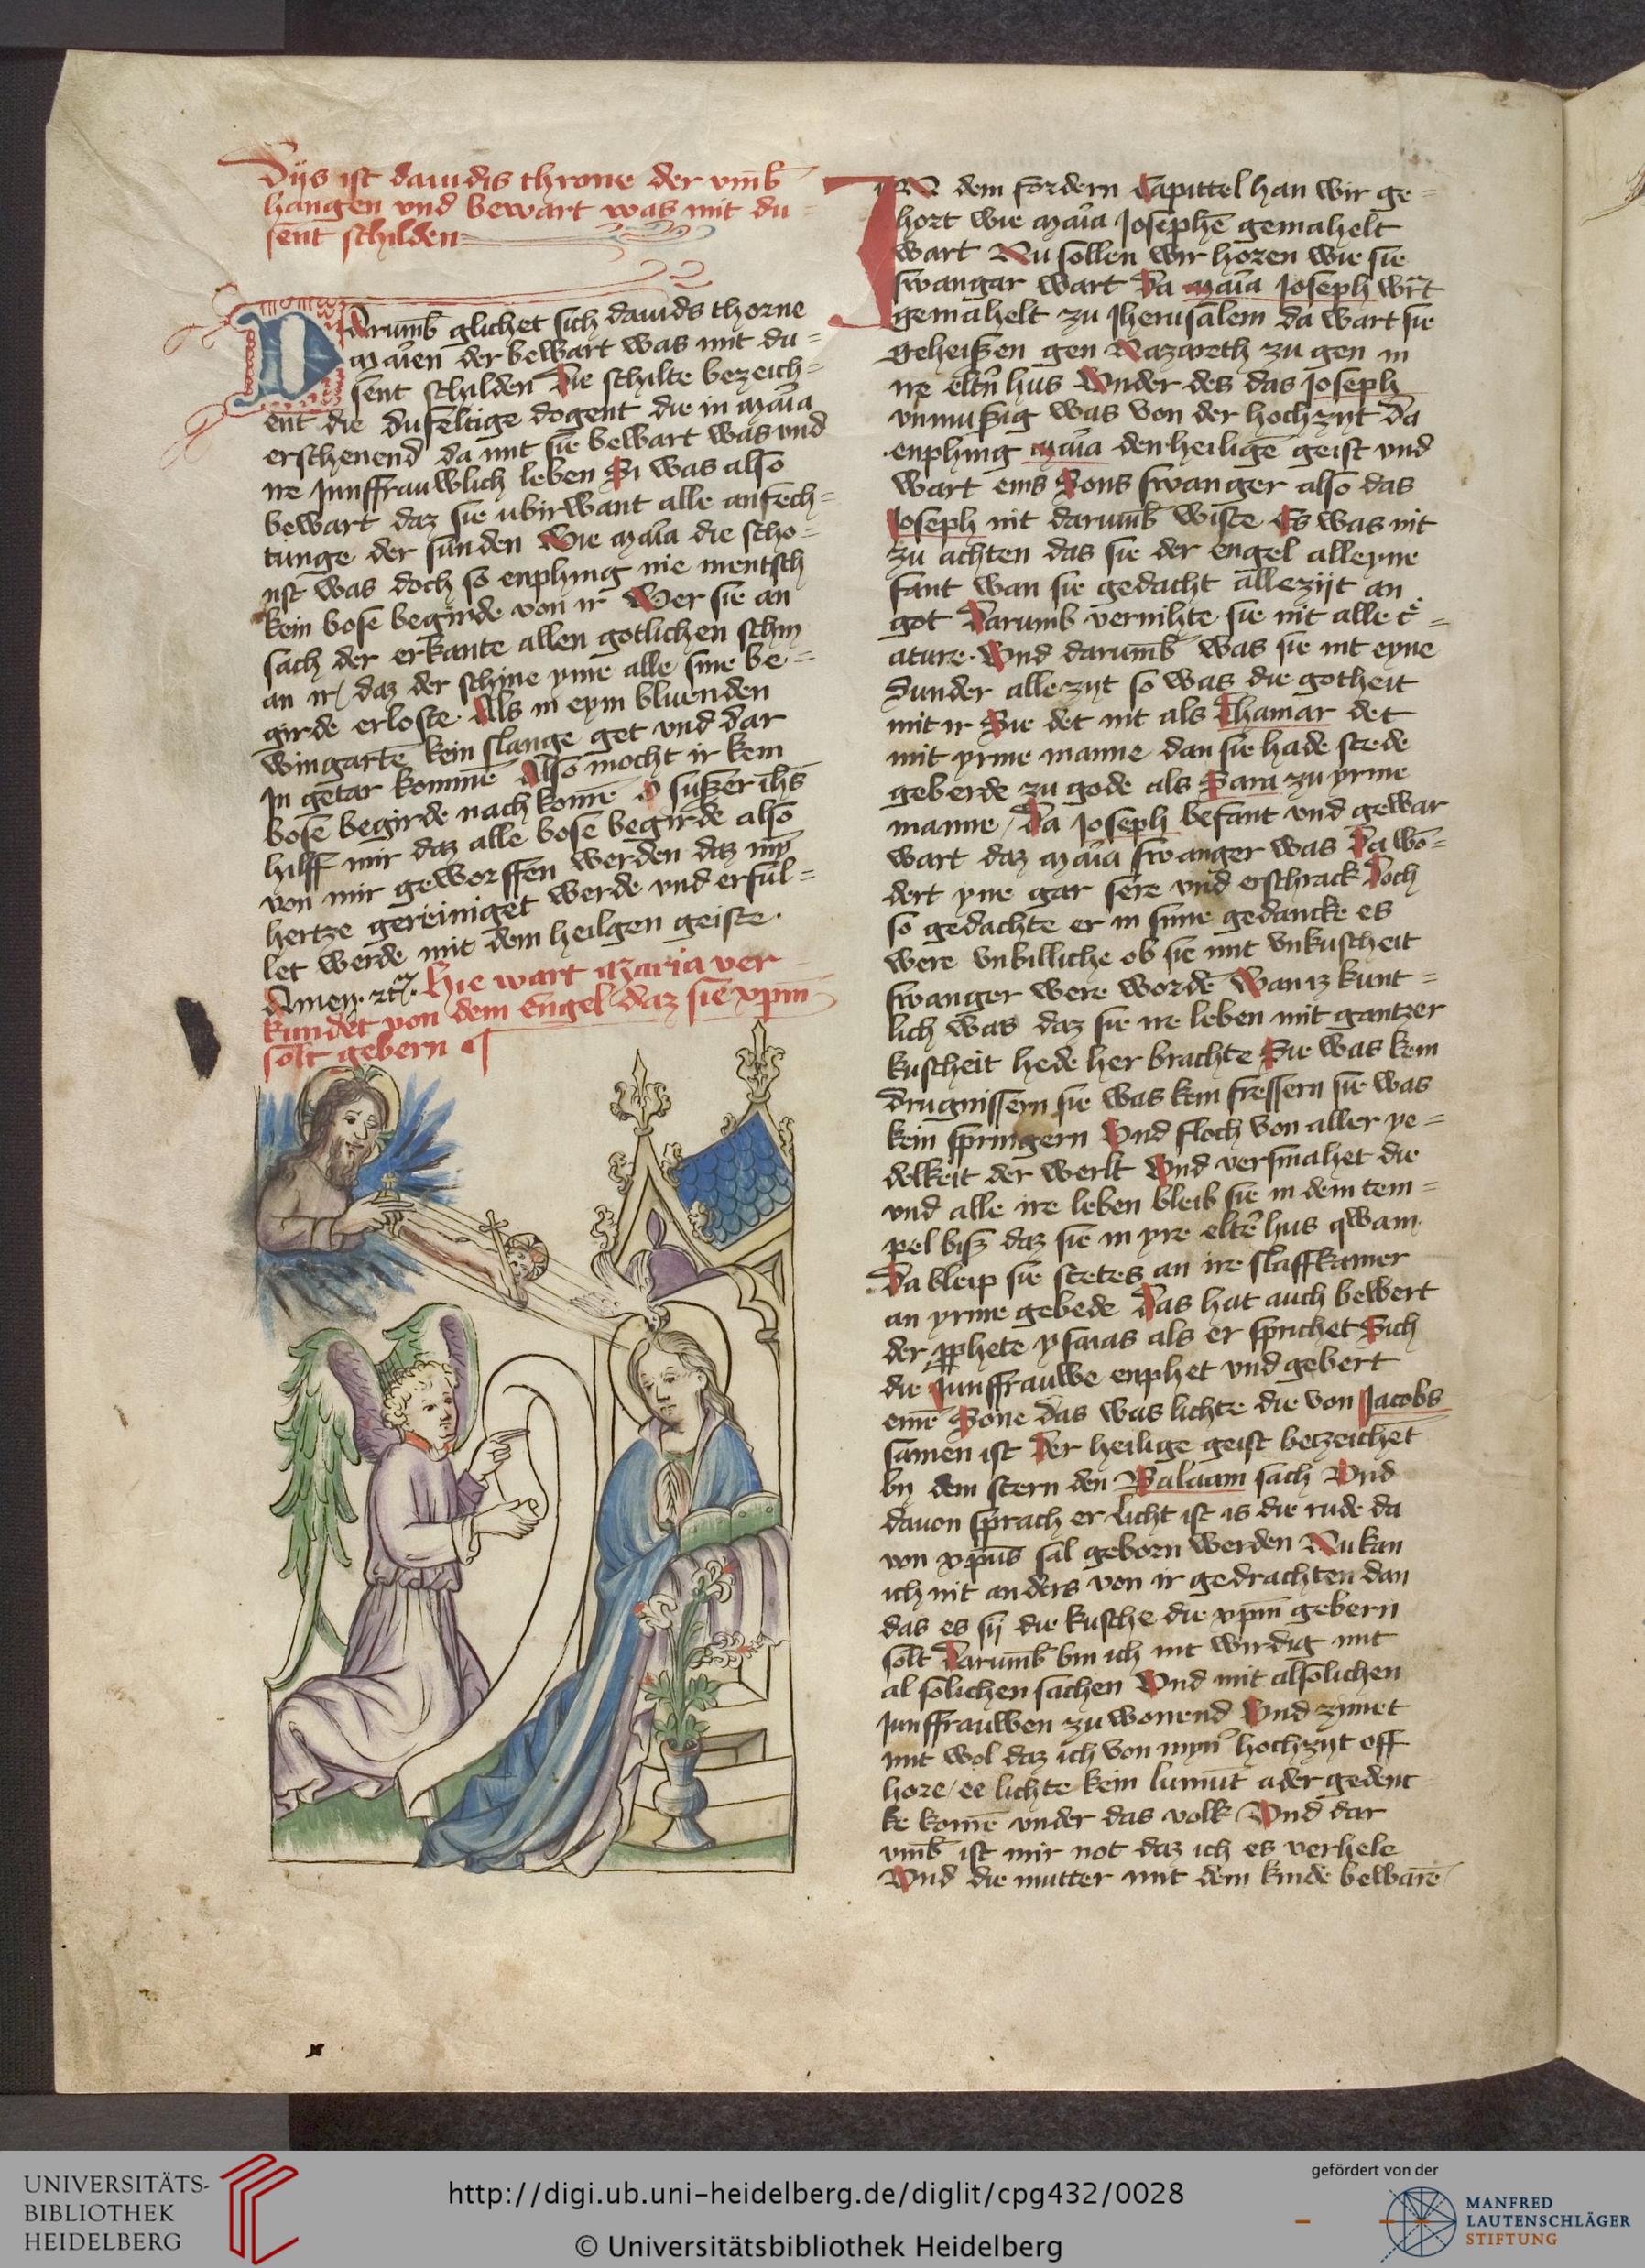 Dyis ist dauidis throne der vmb
hangen vnd bewart was mit du=
sent schilden
Darumb glichet sich dauids thorne
Marien der bewart was mit du=
sent schilden Die schilte bezeich=
ent die dufeltige dogent die in maria
erschenend da mit sie bewart was vnd
ire Junffrauwlich leben Si was also
bewart daz sie ubirwant alle anfech=
tunge der sunden Wie maria die scho=
nst was doch so enphing nie mentsch
kein bose begirde von ir Wer sie an
sach der erkante allen gotlichen schin
an ir / daz der schine yme alle sine be=
girde erloste. Als in eym bluenden
wingarte kein slange get vnd dar
In getar komme Also mocht ir kein
bose begirde nach kome O sußer ihs
hilff mir daz alle bose begirde also
von mir geworffen werden daz myn
hertze gereiniget werde vnd erful=
let werde mit dem heilgen geiste.
Amen. Hie wart Maria ver
kundet von dem Engel daz sie xpm
solt gebern
IN dem fordern Capittel han wir ge=
hort wie maria Joseph gemahelt
wart Nu sollen wir horen wie sie
swangar wart Da maria Joseph wirt
gemahelt zu Jherusalem da wart sie
geheißen gen Nazareth zu gen in
ire eltn hus Vnder des das Joseph
vnmußig was von der hochzyt Da
enphing maria den heilige geist vnd
wart eins Sons swanger also das
Joseph nit darumb wiste Es was nit
zu achten das sie der engel alleyne
fant wan sie gedacht allezijt an
got Darumb vernihte sie nit alle c=
ature. Vnd darumb was sie nit eyne
sunder allezyt so was die gotheit
mit ir Sie det nit als Thamar det
mit yrme manne dan sie hade stede
geberde zu gode als Sara zu yrme
manne / Da Joseph befant vnd gewar
wart daz maria swanger was Da wo=
dert yne gar sere vnd erschrack Doch
so gedachte er in sime gedancke es
were vnbilliche ob sie mit vnkuscheit
swanger were worde Wan iz kunt=
lich was daz sie ire leben mit gantzer
kuscheit hede her brachte Sie was kein
drugnissern sie was kein fressern sie was
kein springern Vnd floch von aller ye=
delkeit der werlt Vnd versmahet die
vnd alle ire leben bleib sie in dem tem=
pel biß daz sie in yre elte hus qwam
Da bleip sie stetes an ire slaffkamer
an yrme gebede Das hat auch bewert
der pphete ysaias als er sprichet Sich
die Junffrauwe enphet vnd gebert
eine Sone das was lichte die von Jacobs
samen ist Der heilige geist betzeichet
by dem stern den Balaam sach Vnd
dauon sprach er Licht ist is die rude da
von xpus sal geborn werden Nu kan
ich nit anders von ir gedrachten dan
das es sij die kusche die xpm gebern
solt Darumb bin ich nit wirdig mit
al solichen sachen Vnd mit alsolichen
Junffrauwen zu wonend Vnd zymet
mit wol daz ich von myn hochzyt off
hore / ee lichte kein lumut ader gedenc
ke kome vnder das volk Vnd dar
vmb ist mir not daz ich es verhele
Vnd die mutter mit dem kinde beware
UNIVERSITÄTS-
BIBLIOTHEK
HEIDELBERG
http://digi.ub.uni-heidelberg.de/diglit/cpg432/0028
© Universitätsbibliothek Heidelberg
gefördert von der
MANFRED
LAUTENSCHLÄGER
STIFTUNG